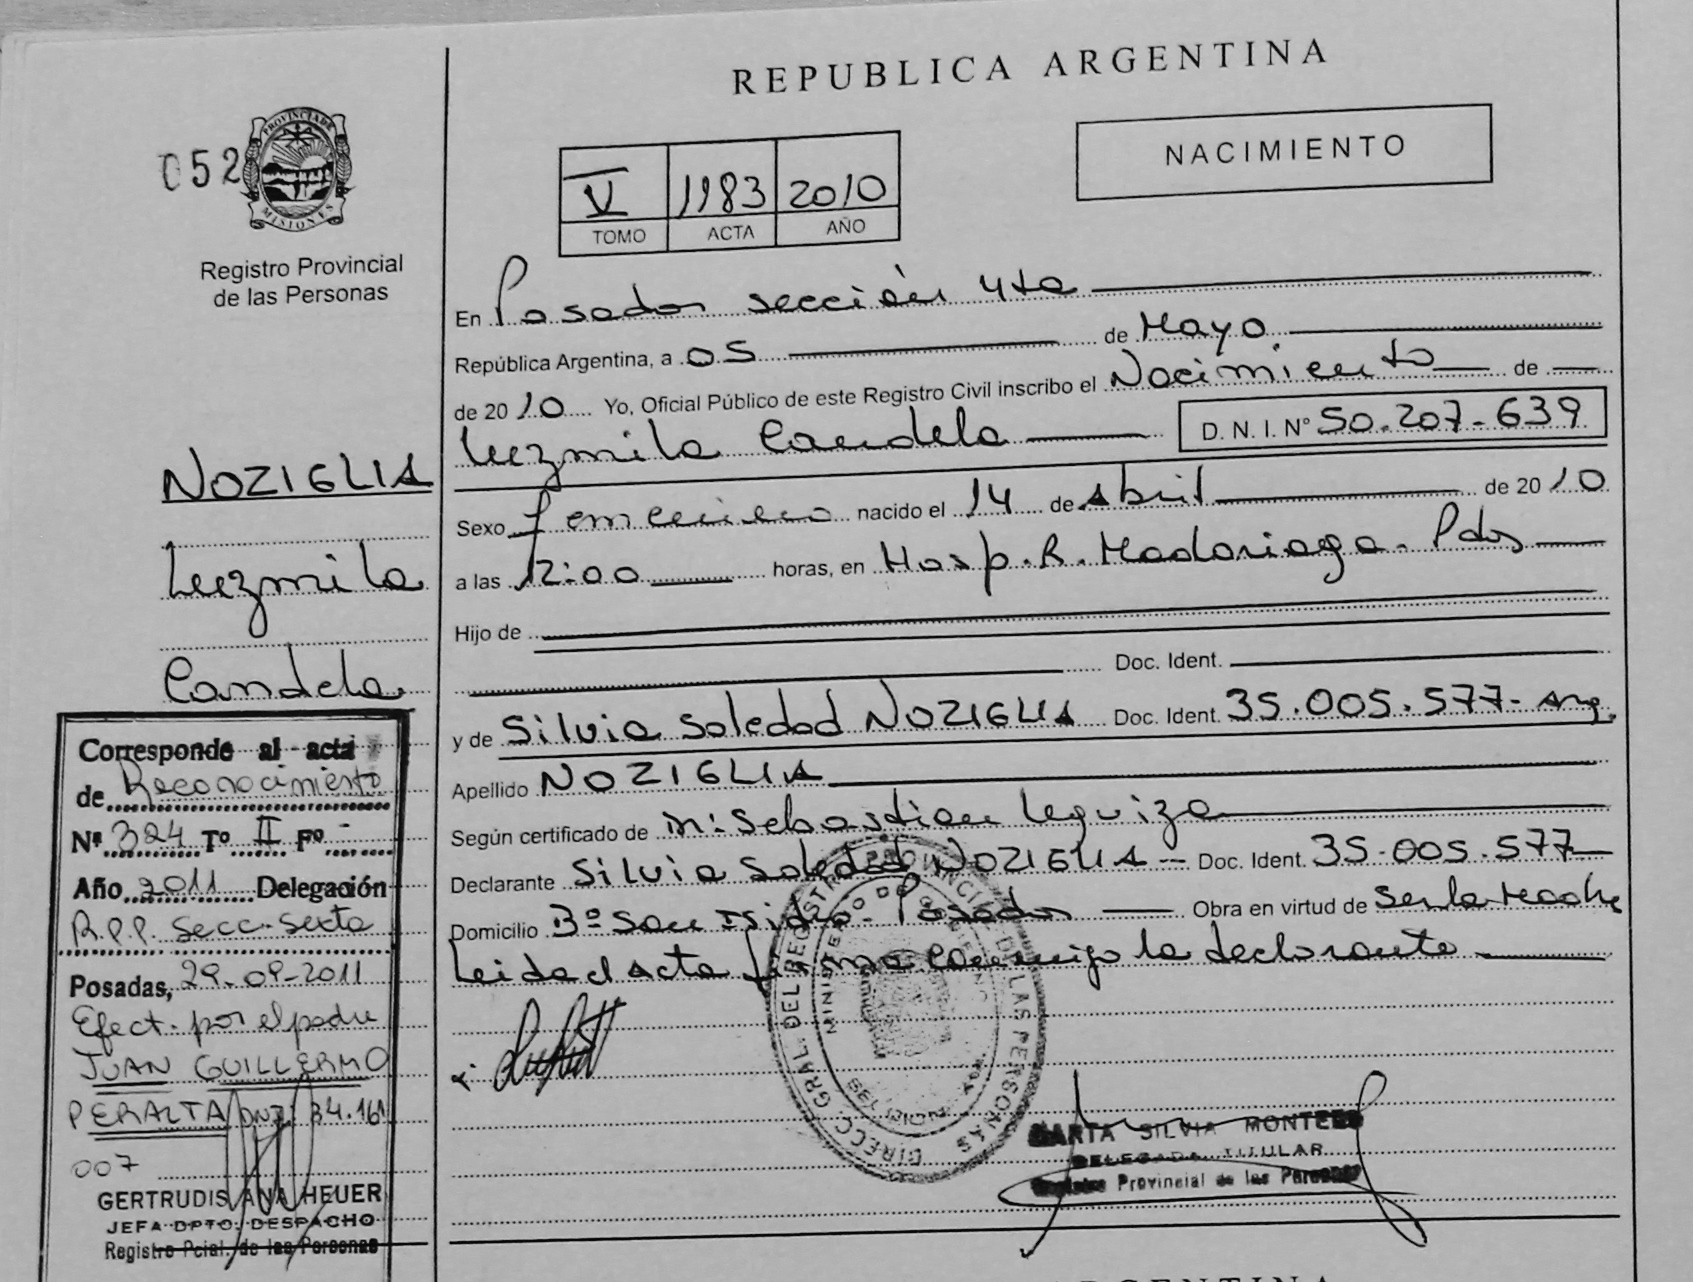 REPUBLICA ARGENTINA
NACIMIENTO
052
PROVINCIA DE
MISIONES
Registro Provincial
de las Personas
V 1183 2010
TOMO ACTA AÑO
En Posadas sección 4ta
República Argentina, a 05 de Mayo
de 2010 Yo, Oficial Público de este Registro Civil inscribo el Nacimiento de
Luzmila Candela D. N. I. Nº 50.207.639
Sexo femenino nacido el 14 de Abril de 2010
a las 12:00 horas, en Hosp. R. Madariaga. Pdas
Hijo de
Doc. Ident.
y de Silvia Soledad NOZIGLIA Doc. Ident. 35.005.577- Arg.
Apellido NOZIGLIA
Según certificado de Mº Sebastian Leguiza
Declarante Silvia Soledad NOZIGLIA Doc. Ident. 35.005.577
Domicilio Bº San Isidro. Posadas Obra en virtud de Ser la Madre
Leida el Acta firma conmigo la declarante
DIRECC. GRAL. DEL REGISTRO PROVINCIAL DE LAS PERSONAS
MINISTERIO DE GOBIERNO
MARTA SILVIA MONTERO
DELEGADA TITULAR
Registro Provincial de las Personas
NOZIGLIA
Luzmila
Candela
Corresponde al acta
de Reconocimiento
Nº 324 Tº II Fº -
Año 2011 Delegación
R.P.P. Secc. Sexta
Posadas, 29-09-2011
Efect. por el padre
JUAN GUILLERMO
PERALTA DNI 34.161
007
GERTRUDIS ANA HEUER
JEFA DPTO. DESPACHO
Registro Pcial. de las Personas